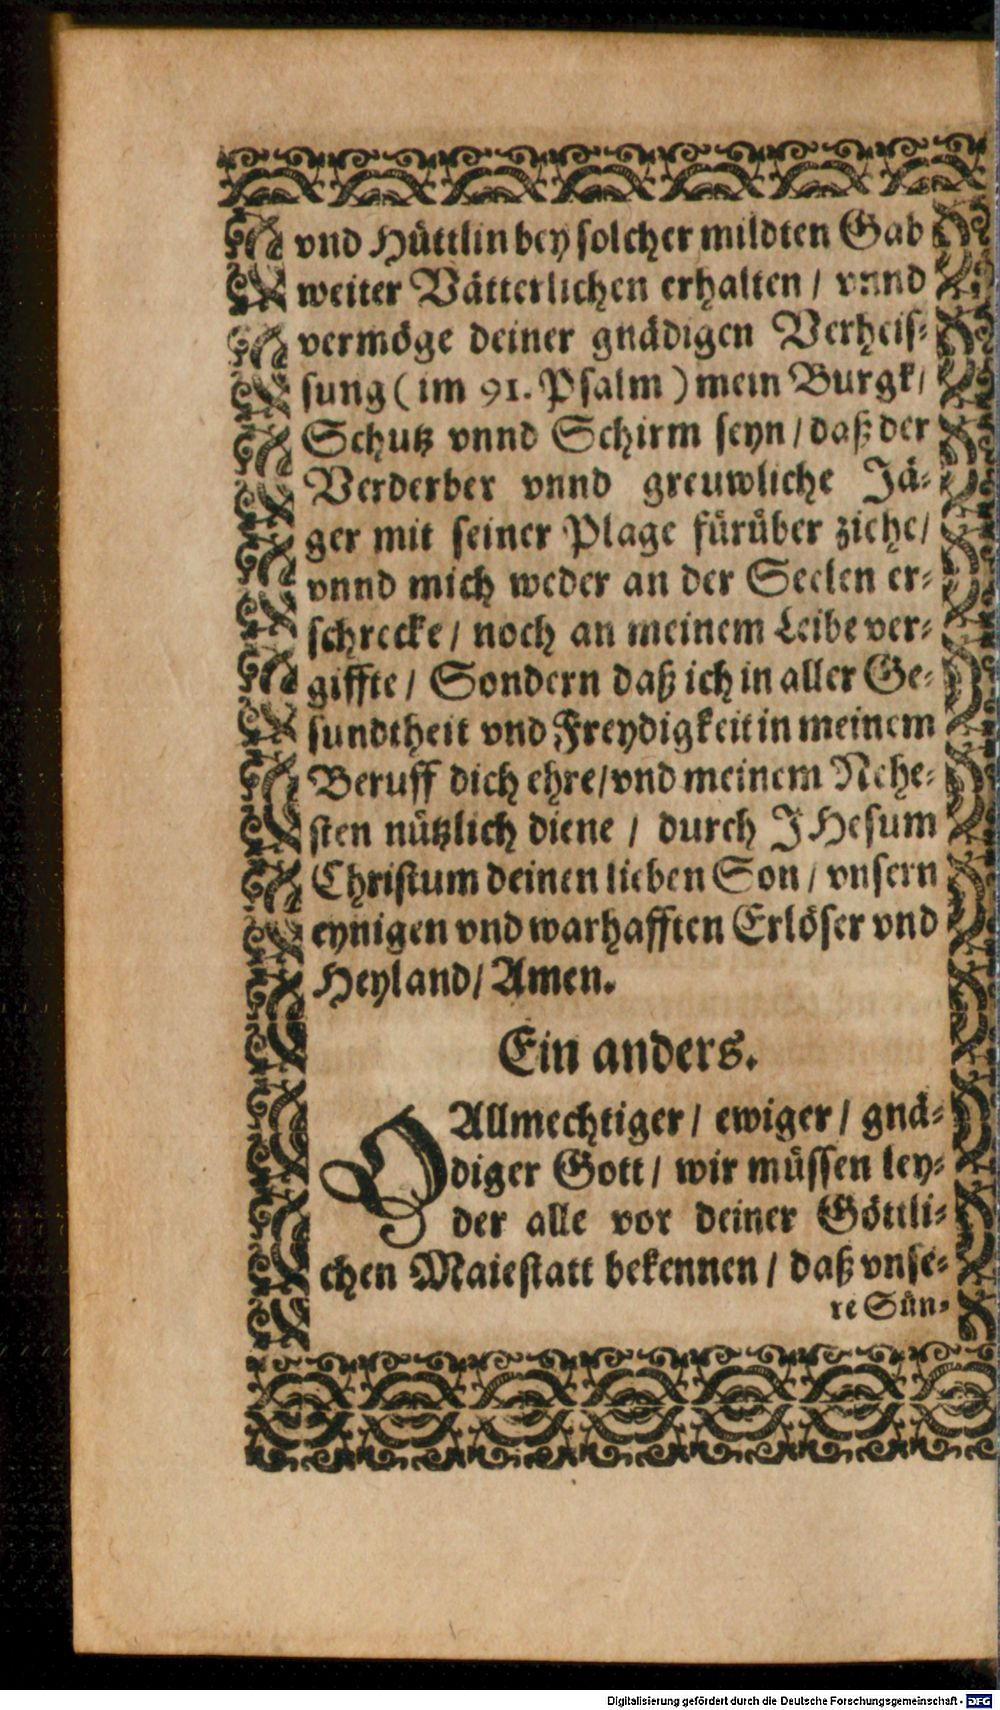 vnd Hüttlin bey solcher mildten Gab
weiter Vätterlichen erhalten / vnnd
vermöge deiner gnädigen Verheis-
sung ( im 91. Psalm ) mein Burgk /
Schutz vnnd Schirm seyn / daß der
Verderber vnnd greuwliche Jä-
ger mit seiner Plage fürüber ziehe /
vnnd mich weder an der Seelen er-
schrecke / noch an meinem Leibe ver-
giffte / Sondern daß ich in aller Ge-
sundtheit vnd Freydigkeit in meinem
Beruff dich ehre / vnd meinem Nehe-
sten nützlich diene / durch JHesum
Christum deinen lieben Son / vnsern
eynigen vnd warhafften Erlöser vnd
Heyland / Amen.
Ein anders.
O Allmechtiger / ewiger / gnä-
diger Gott / wir müssen ley-
der alle vor deiner Göttli-
chen Maiestatt bekennen / daß vnse-
re Sün-
Digitalisierung gefördert durch die Deutsche Forschungsgemeinschaft - DFG